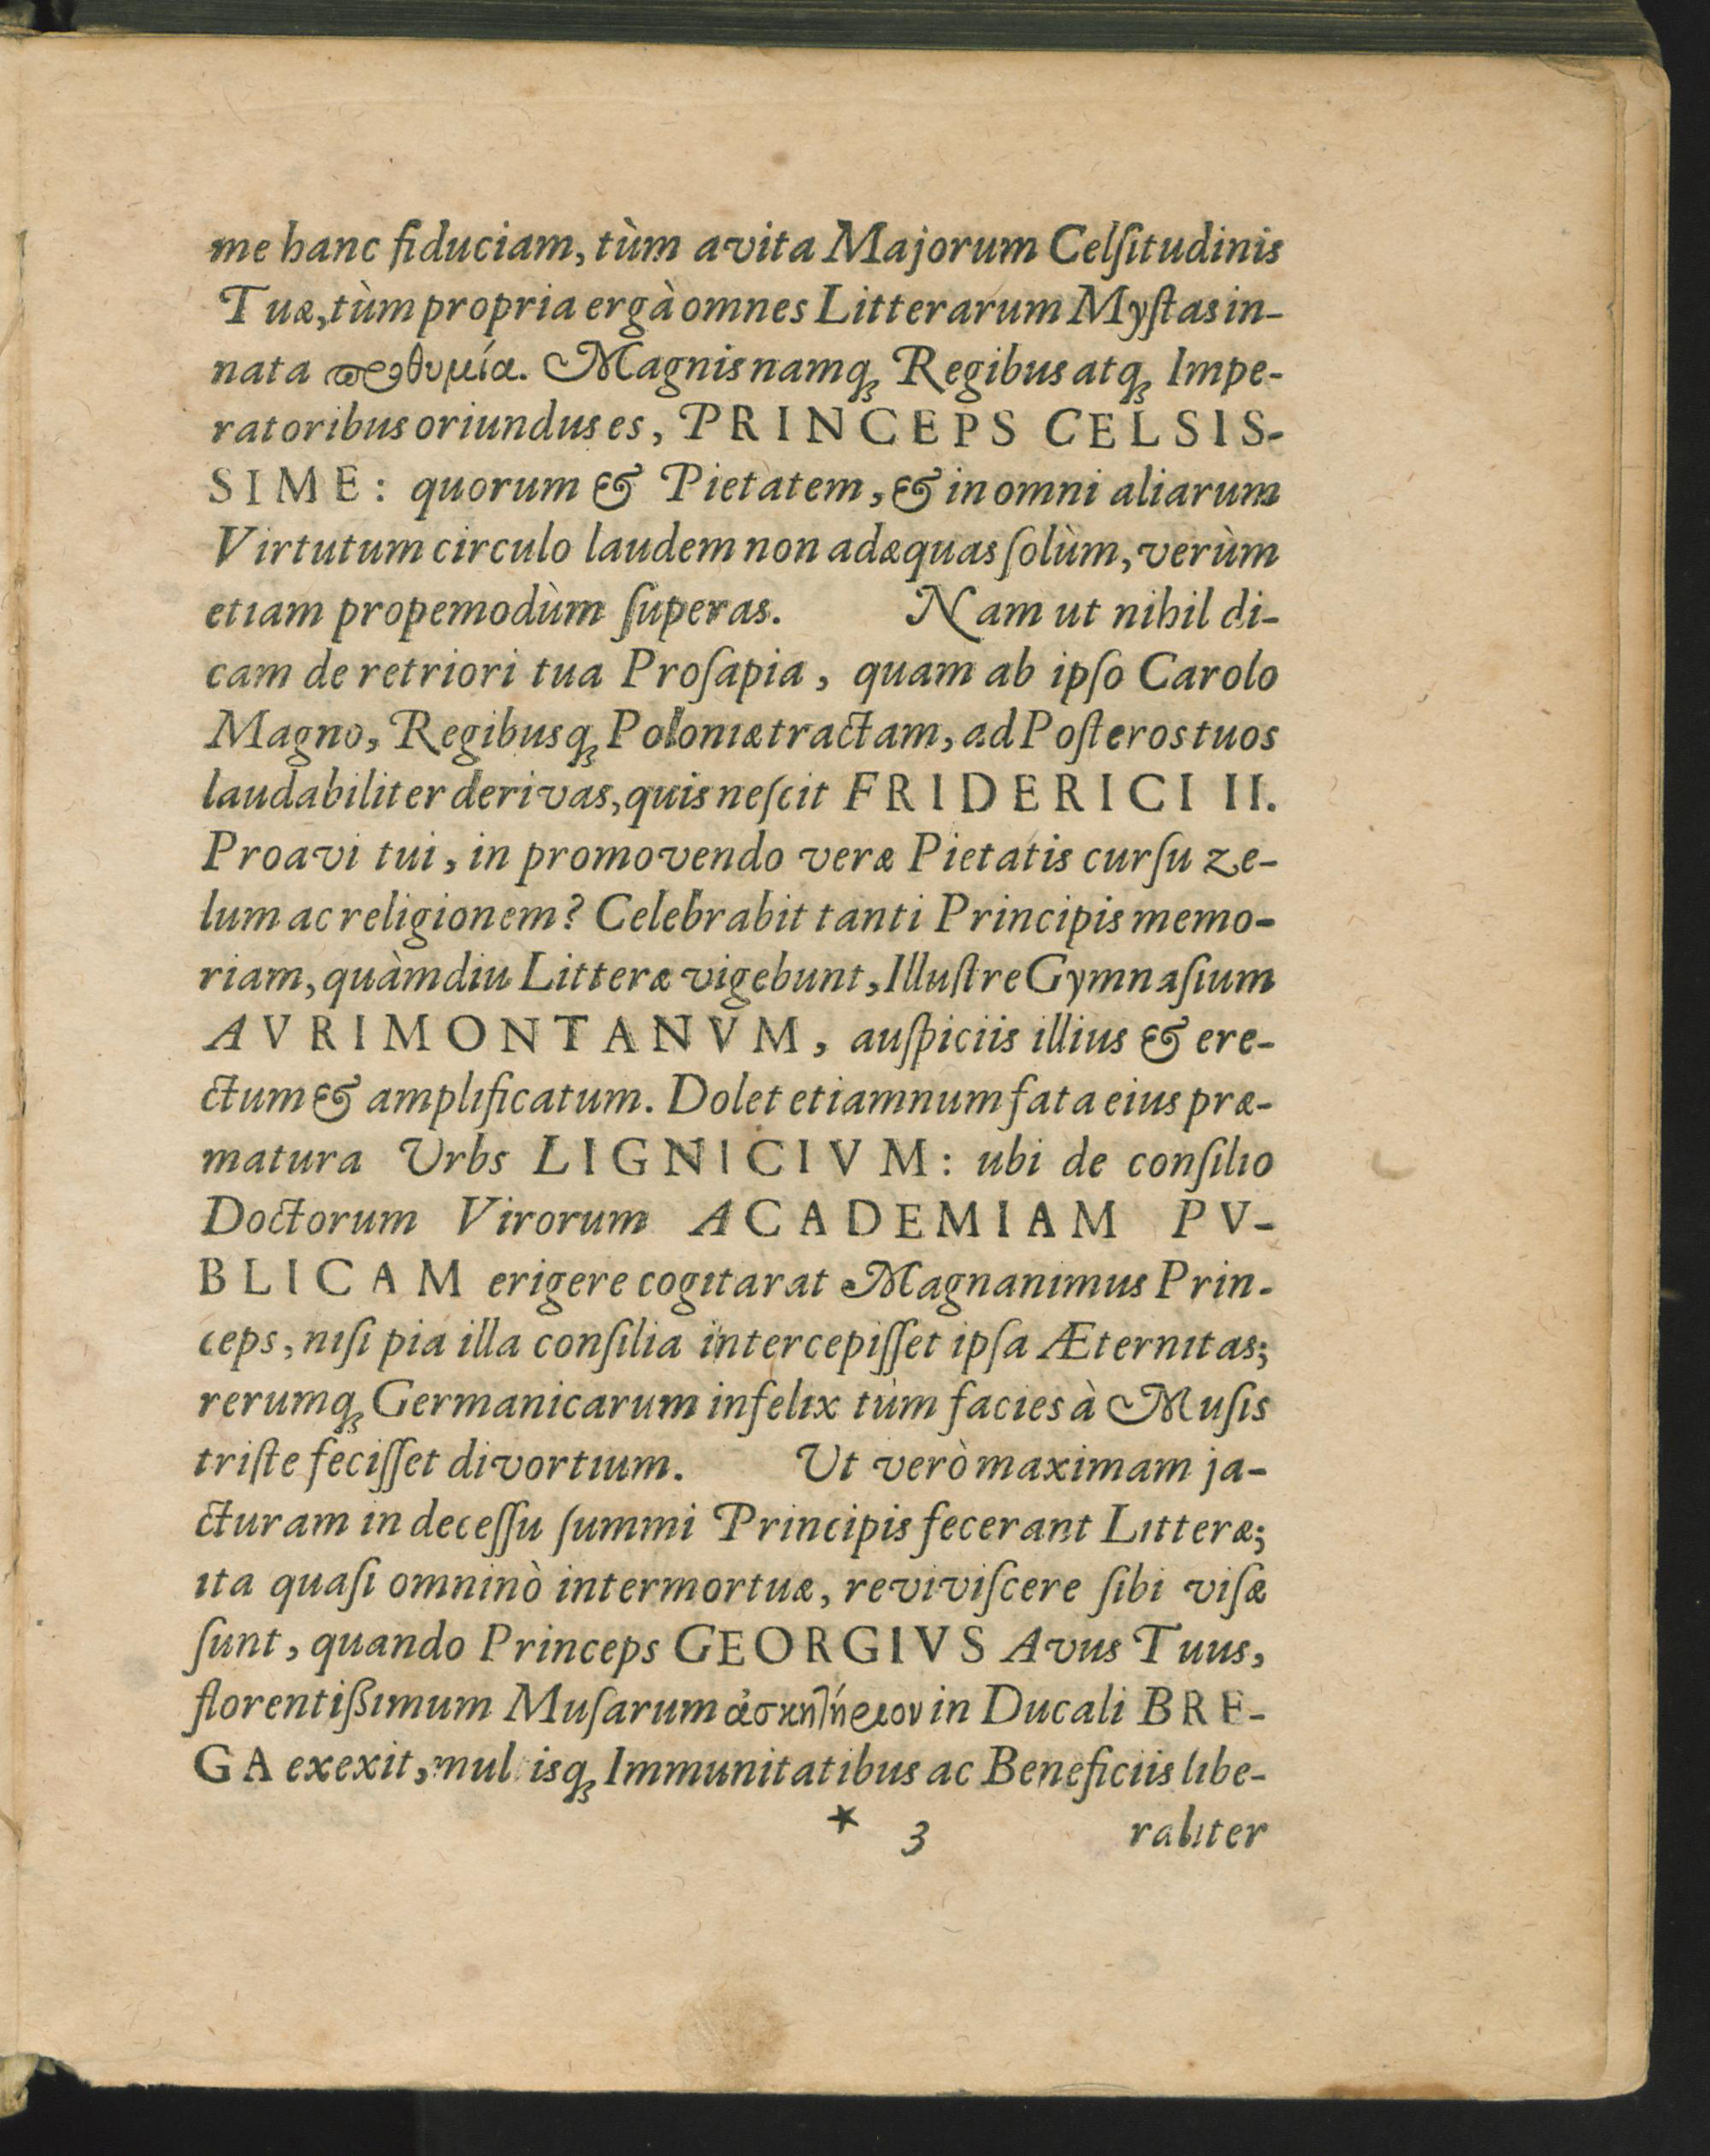 me hanc fiduciam, tùm avita Majorum Celſitudinis
Tuæ, tùm propria ergà omnes Litterarum Myſtas in-
nata προθυμία. Magnis namq; Regibus atq; Impe-
ratoribus oriundus es, PRINCEPS CELSIS-
SIME: quorum & Pietatem, & in omni aliarum
Virtutum circulo laudem non adæquas ſolùm, verùm
etiam propemodùm ſuperas. Nam ut nihil di-
cam de retriori tua Proſapia, quam ab ipſo Carolo
Magno, Regibusq; Poloniæ tractam, ad Poſteros tuos
laudabiliter derivas, quis neſcit FRIDERICI II.
Proavi tui, in promovendo veræ Pietatis curſu ze-
lum ac religionem? Celebrabit tanti Principis memo-
riam, quàmdiu Litteræ vigebunt, Illuſtre Gymnaſium
AVRIMONTANVM, auſpiciis illius & ere-
ctum & amplificatum. Dolet etiamnum fata eius præ-
matura Urbs LIGNICIVM: ubi de conſilio
Doctorum Virorum ACADEMIAM PV-
BLICAM erigere cogitarat Magnanimus Prin-
ceps, niſi pia illa conſilia intercepiſſet ipſa Æternitas;
rerumq; Germanicarum infelix tùm facies à Muſis
triſte feciſſet divortium. Ut verò maximam ja-
cturam in deceſſu ſummi Principis fecerant Litteræ;
ita quaſi omninò intermortuæ, reviviſcere ſibi viſæ
ſunt, quando Princeps GEORGIVS Avus Tuus,
florentißimum Muſarum ἀσκητήριον in Ducali BRE-
GA exexit, multisq; Immunitatibus ac Beneficiis libe-
* 3 raliter